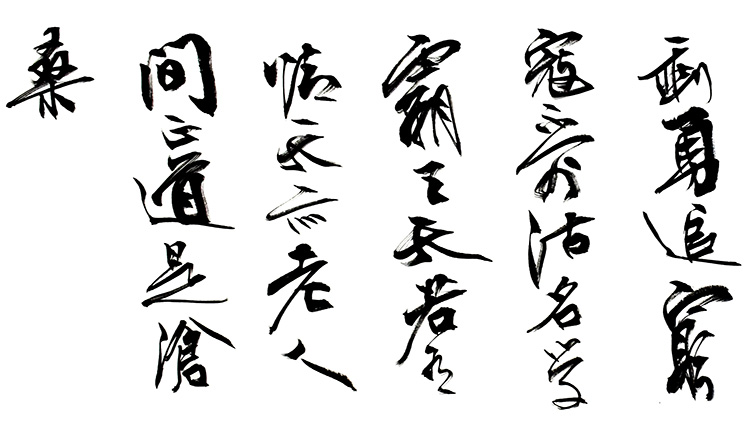 剩勇追窮
寇不可沽名学
霸王天若有
情天亦老人
間正道是滄
桑